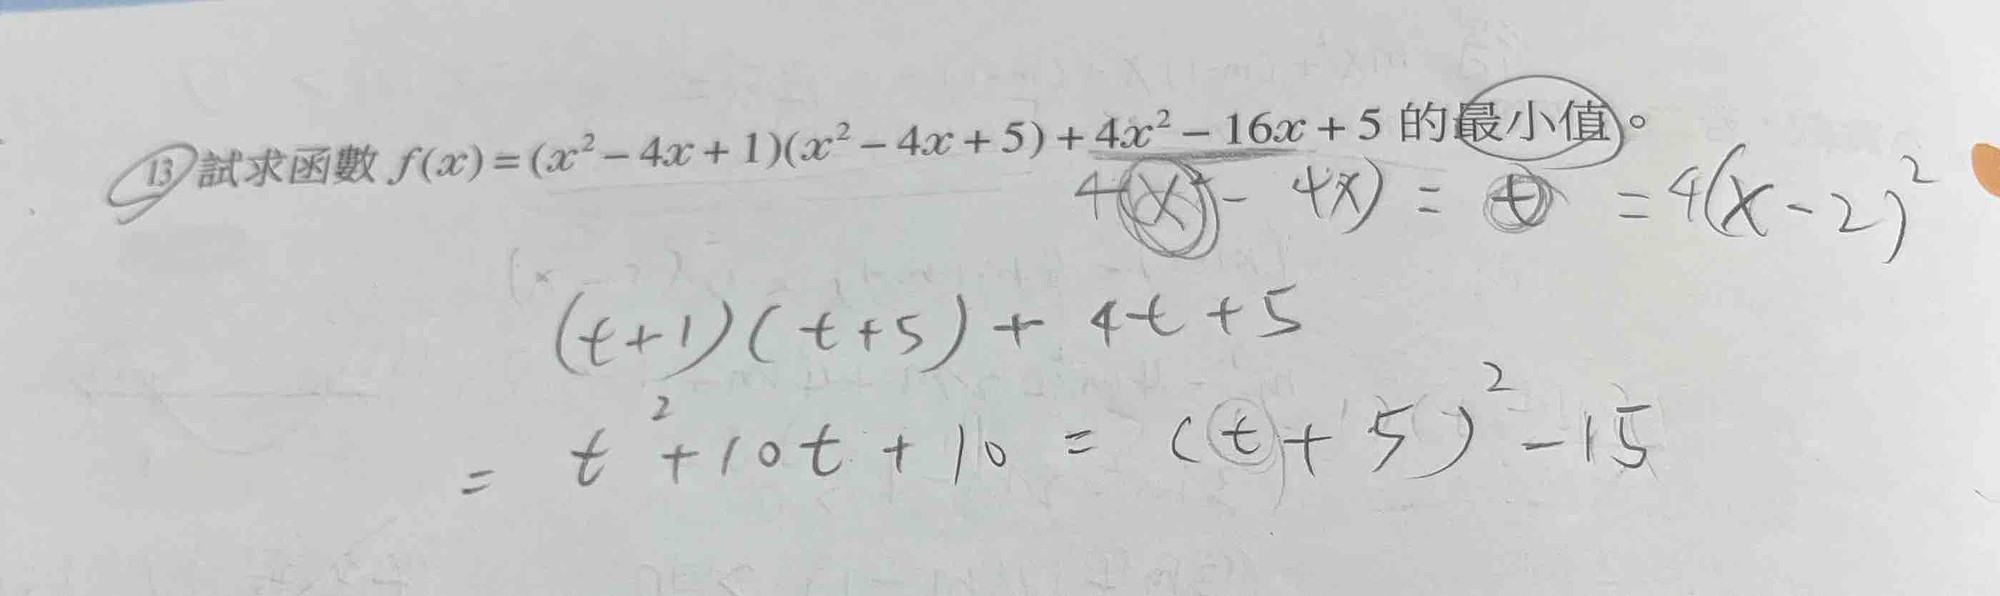 13 試求函數 f(x)=(x²−4x+1)(x²−4x+5)+4x²−16x+5 的最小值。
4(x²− 4x) = t = 4(x−2)²
(t+1)(t+5)+ 4t+5
= t²+10t+10 = (t+5)²−15